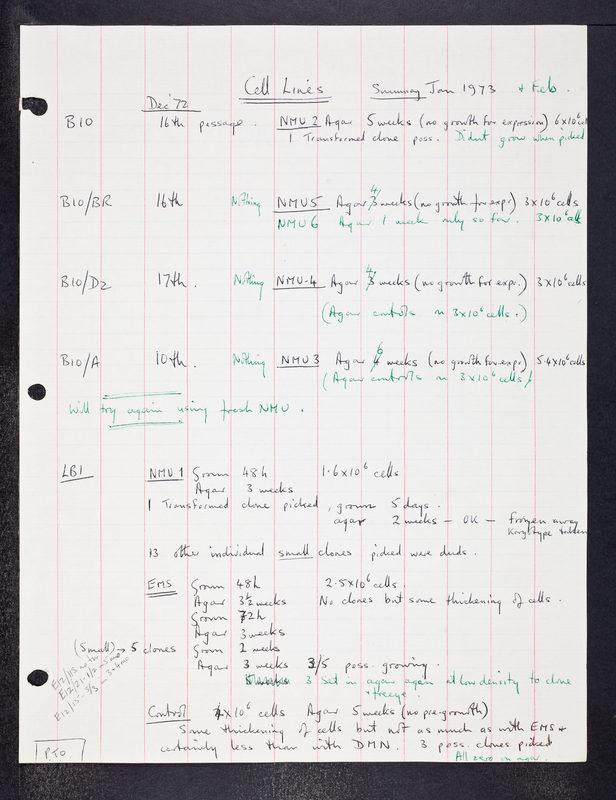 Cell Lines Summary Jan 1973 + Feb.
Dec '72
B10 16th passage. NMU 2 Agar 5 weeks (no growth for expression) 6x10⁶ cell
1 Transformed clone poss. Didn't grow when picked
B10/BR 16th Nothing NMU5 Agar 4 3 weeks (no growth for expr) 3x10⁶ cells
NMU 6 Agar 1 week only so far. 3x10⁶ cells
B10/D2 17th. Nothing NMU-4 Agar 4 3 weeks (no growth for expr.) 3x10⁶ cells
(Agar controls n 3x10⁶ cells.)
B10/A 10th. Nothing NMU 3 Agar 6 4 weeks (no growth for expr) 5.4x10⁶ cells
(Agar controls n 3x10⁶ cells)
Will try again using fresh NMU.
LB1 NMU 1 Grown 48h 1.6x10⁶ cells
Agar 3 weeks
1 Transformed clone picked, grown 5 days.
agar 2 weeks - OK - frozen away
Karyotype taken
13 other individual small clones picked were duds.
EMS Grown 48h 2.5x10⁶ cells.
Agar 3½ weeks No clones but some thickening of cells.
Grown 72h
Agar 3 weeks
(Small) → 5 clones Grown 2 weeks
Agar 3 weeks 3/5 poss. growing.
3 Set in agar again at low density to clone
+ freeze.
E12/113
E12/21-1/2 - 5mo
E12/113 - 3/3 - 3-4mo
Control 4x10⁶ cells Agar 5 weeks (no pre-growth)
Some thickening of cells but not as much as with EMS +
certainly less than with DMN. 3 poss. clones picked
All zero on agar.
PTO